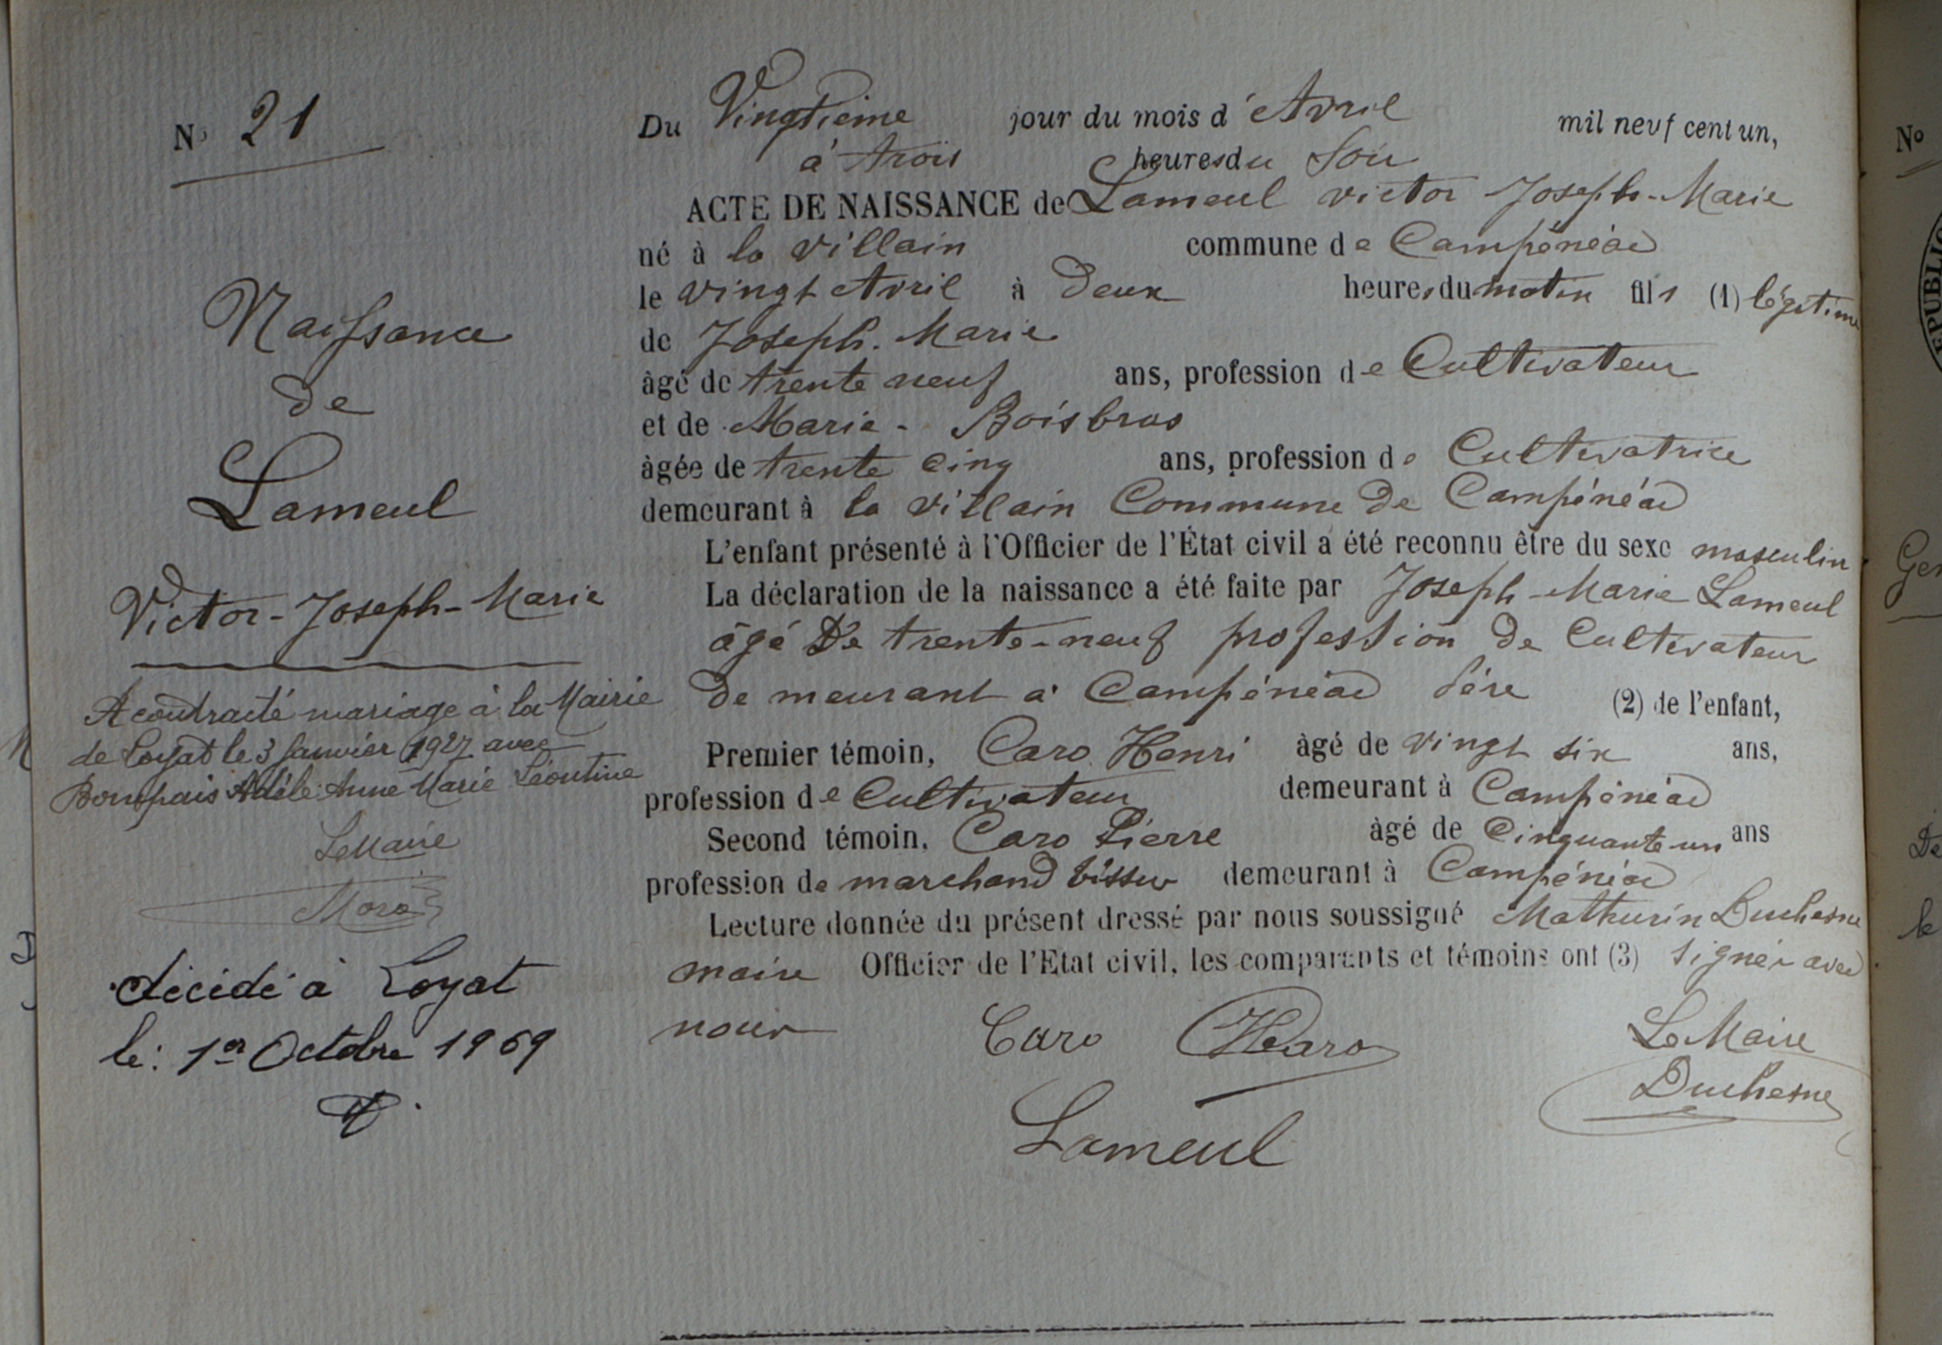 N° 21
Naissance
de
Lameul
Victor-Joseph-Marie
A contracté mariage à la Mairie
de Loyat le 3 Janvier 1927 avec
Bompais Adèle Anne Marie Léontine
Le Maire
décédé à Loyat
le: 1er Octobre 1969
Du Vingtième jour du mois d'Avril mil neuf cent un,
à trois heures du Soir
ACTE DE NAISSANCE de Lameul victor Joseph-Marie
né à la villain commune de Campénéac
le vingt Avril à deux heures du matin fils (1) légitime
de Joseph. Marie
âgé de trente neuf ans, profession de Cultivateur
et de Marie - Boisbras
âgée de trente cinq ans, profession de Cultivatrice
demeurant à la villain Commune de Campénéac
L'enfant présenté à l'Officier de l'État civil a été reconnu être du sexe masculin
La déclaration de la naissance a été faite par Joseph-Marie Lameul
âgé De trente-neuf profession de Cultivateur
de meurant à Campénéac Père (2) de l'enfant,
Premier témoin, Caro Henri âgé de vingt six ans,
profession de Cultivateur demeurant à Campénéac
Second témoin, Caro Pierre âgé de Cinquante-un ans
profession de marchand demeurant à Campénéac
Lecture donnée du présent dressé par nous soussigné Mathurin Duchesne
maire Officier de l'État civil, les comparants et témoins ont (3) signés avec
nous
Caro HCaro
Le Maire
Duchesne
Lameul
N°